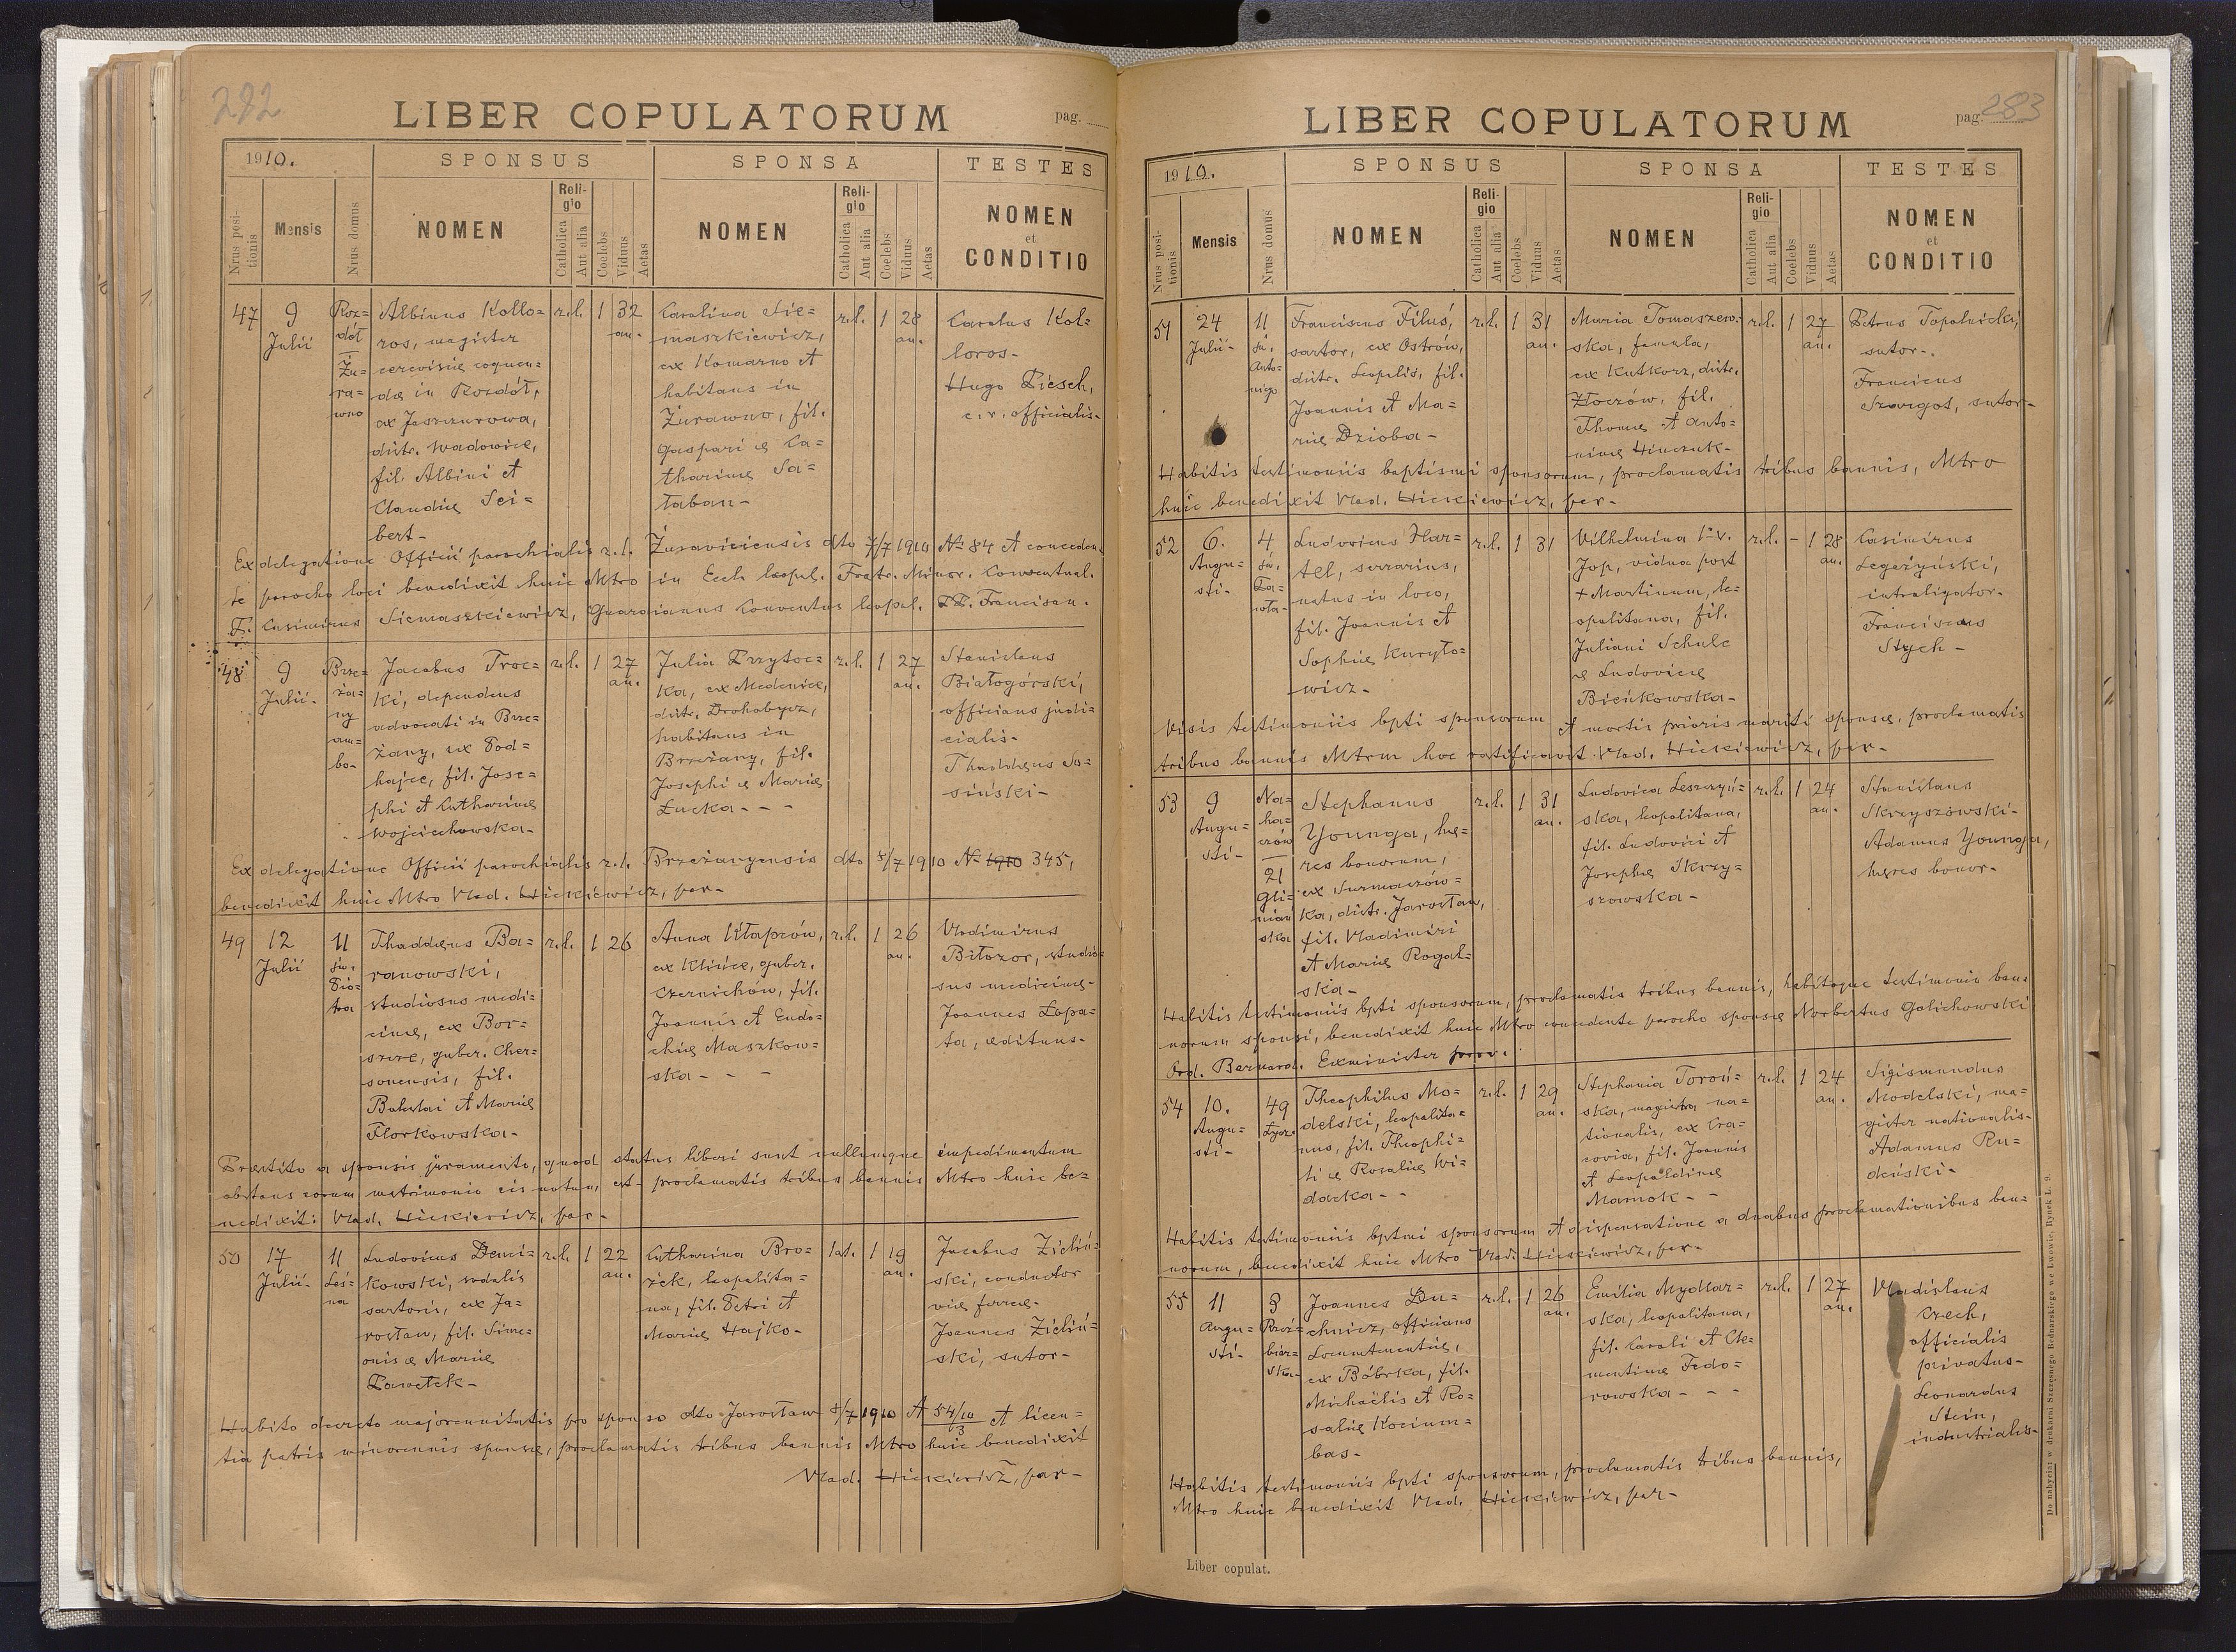 282
LIBER COPULATORUM
pag.
1910.
SPONSUS
SPONSA
TESTES
Nrus positionis
Mensis
Nrus domus
NOMEN
Religio
Catholica
Aut alia
Coelebs
Viduus
Aetas
NOMEN
Religio
Catholica
Aut alia
Coelebs
Viduus
Aetas
NOMEN
et
CONDITIO
47
9
Julii
Roz=
dół
Żu=
ra=
wno
Albinus Kollo=
ros, magister
cerevisiæ coquen=
dæ in Rozdół,
ex Jaszczurowa,
distr. Wadowice,
fil. Albini et
Claudiæ Sei=
bert-
r.l.
1
32
an.
Carolina Sie=
maszkiewicz,
ex Komarno et
habitans in
Żurawno, fil.
Gaspari & Ca=
tharinæ Sa=
łaban-
r.l.
1
28
an.
Carolus Kol=
loros-
Hugo Piesch,
c.r. officialis-
Ex delegatione Officii parochialis r.l. Żuraviciensis dto 7/7 1910 № 84 et conceden=
te parocho loci benedixit huic Mtro in Eccl. leopol. Fratr. Minor. Conventual.
F. Casimirus Siemaszkiewicz, Guardianus Conventus leopol. PP. Franciscan.
48
9
Julii.
Brze=
ża=
ny
am=
bo-
Jacobus Troc=
ki, dependens
advocati in Brze=
żany, ex Pod=
hajce, fil. Jose=
phi et Catharinæ
Wojciechowska-
r.l.
1
27
an.
Julia Przytoc=
ka, ex Medenice,
distr. Drohobycz,
habitans in
Brzeżany, fil.
Josephi & Mariæ
Łucka - - -
r.l.
1
27
an.
Stanislaus
Białogórski,
officians judi=
cialis-
Thaddæus So=
siński-
Ex delegatione Officii parochialis r.l. Brzeżanyensis dto 8/7 1910 № 1910 345,
benedixit huic Mtro Vlad. Hickiewicz, par-
49
12
Julii
11
św.
Pio=
tra
Thaddæus Ba=
ranowski,
studiosus medi=
cinæ, ex Bor=
szcze, guber. Cher=
sonensis, fil.
Boleslai et Mariæ
Florkowska-
r.l.
1
26
Anna Kłapców,
ex Klińce, guber.
Czernichów, fil.
Joannis et Eudo=
chiæ Maszkow=
ska - - -
r.l.
1
26
an.
Vlodimirus
Biłozor, studio=
sus medicinæ-
Joannes Łopa=
ta, ædituus-
Præstito a sponsis juramento, quod status liberi sunt nullumque impedimentum
obstans eorum matrimonio eis notum, est- proclamatis tribus bannis Mtro huic be=
nedixit: Vlad. Hickiewicz, par-
50
17
Julii-
11
Leś=
na
Ludovicus Demi=
kowski, sodalis
sartoris, ex Ja=
rosław, fil. Sime=
onis & Mariæ
Pawełek-
r.l.
1
22
an.
Catharina Bro=
żek, leopolita=
na, fil. Petri et
Mariæ Hajko-
lat.
1
19
an.
Jacobus Zieliń=
ski, conductor
viæ ferreæ-
Joannes Zieliń=
ski, sutor-
Habito decreto majorennitatis pro sponso dto Jarosław 8/7 1910 A 54/10 et licen=
3
tia patris minorennis sponsæ, proclamatis tribus bannis Mtro huic benedixit
Vlad. Hickiewicz, par-
LIBER COPULATORUM
pag. 283
1910.
SPONSUS
SPONSA
TESTES
Nrus positionis
Mensis
Nrus domus
NOMEN
Religio
Catholica
Aut alia
Coelebs
Viduus
Aetas
NOMEN
Religio
Catholica
Aut alia
Coelebs
Viduus
Aetas
NOMEN
et
CONDITIO
51
24
Julii-
11
św.
Anto=
niego
Franciscus Filuś,
sartor, ex Ostrów,
distr. Leopolis, fil.
Joannis et Ma=
riæ Dzioba-
r.l.
1
31
an.
Maria Tomaszew=
ska, famula,
ex Kutkorz, distr.
Złoczów, fil.
Thomæ et Anto=
ninæ
r.l.
1
27
an.
Petrus Topolnicki,
sutor-.
Franciscus
Szargot, sutor-
Habitis testimoniis baptismi sponsorum, proclamatis tribus bannis, Mtro
huic benedixit Vlad. Hickiewicz, par-
52
6.
Augu=
sti-
4
św.
Za=
Ludovicus Har=
tel, serrarius,
natus in loco,
fil. Joannis et
Sophiæ Kuryło=
wicz-
r.l.
1
31
Vilhelmina 1º v.
Jop, vidua post
+ Martinum, le=
opolitana, fil.
Juliani Schulc
& Ludovicæ
Bieńkowska-
r.l.
-
1
28
an.
Casimirus
Legeżyński,
introligator-
Franciscus
Stych-
Visis testimoniis bpti sponsorum et mortis prioris mariti sponsæ, proclamatis
tribus bannis Mtrm hoc ratificavit Vlad. Hickiewicz, par-
53
9
Augu=
sti-
Na=
ha=
czów
21
Gli=
niań
ska
Stephanus
Younga, hæ=
res bonorum,
ex Surmaczów=
ka, distr. Jarosław,
fil. Vladimiri
et Mariæ Rogal=
ska-
r.l.
1
31
an.
Ludovica Leszczyń=
ska, leopolitana,
fil. Ludovici et
Josephæ Skrzy=
szowska-
r.l.
1
24
an.
Stanislaus
Skrzyszowski-
Adamus Younga,
hæres bonor-
Habitis testimoniis bpti sponsorum, proclamatis tribus bannis, habitoque testimonio ban=
norum sponsi, benedixit huic Mtro concedente parocho sponsæ Norbertus Golichowski
Ord. Bernard. Exminister prov.
54
10.
Augu=
sti-
49
Łycz.
Theophilus Mo=
delski, leopolita=
nus, fil. Theophi=
li & Rosaliæ Wi=
dacka - -
r.l.
1
29
an.
Stephania Toroń=
ska, magistra na=
tionalis, ex Cra=
covia, fil. Joannis
et Leopoldinæ
Mamok - -
r.l.
1
24
an.
Sigismundus
Modelski, ma=
gister nationalis-
Adamus Ru=
deński-
Habitis testimoniis bptmi sponsorum et dispensatione a duabus proclamationibus ban=
norum, benedixit huic Mtro Vlad. Hickiewicz, par-
55
11
Augu=
sti-
3
Joannes Du=
chnicz, officians
Locumtenentiæ,
ex Bóbrka, fil.
Michaëlis et Ro=
saliæ Kocium=
bas-
r.l.
1
26
an.
Emilia Mydlar=
ska, leopolitana,
fil. Caroli et Cle=
mentinæ Fedo=
rowska - - -
r.l.
1
27
an.
Vladislaus
Czech,
officialis
privatus-
Leonardus
Stein,
industrialis-
Habitis testimoniis bpti sponsorum, proclamatis tribus bannis,
Mtro huic benedixit Vlad. Hickiewicz, par-
Liber copulat.
Do nabycia w drukarni Szczęsnego Bednarskiego we Lwowie, Rynek l. 9.